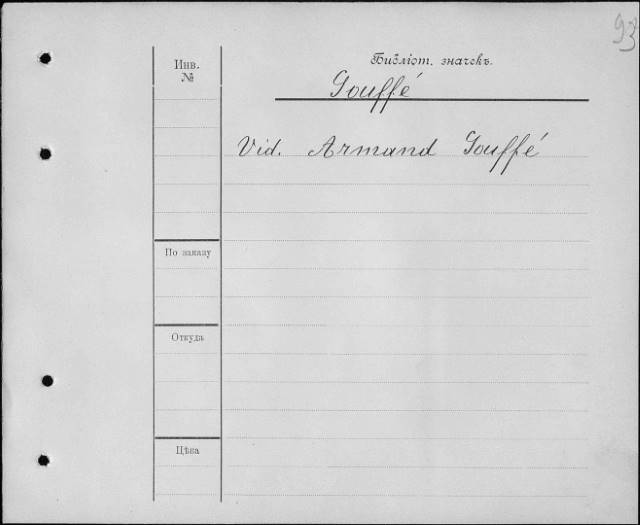 93
Библіот. значекъ.
Инв.
№
Gouffé
Vid. Armand Gouffé
По заказу
Откуда
Цѣна